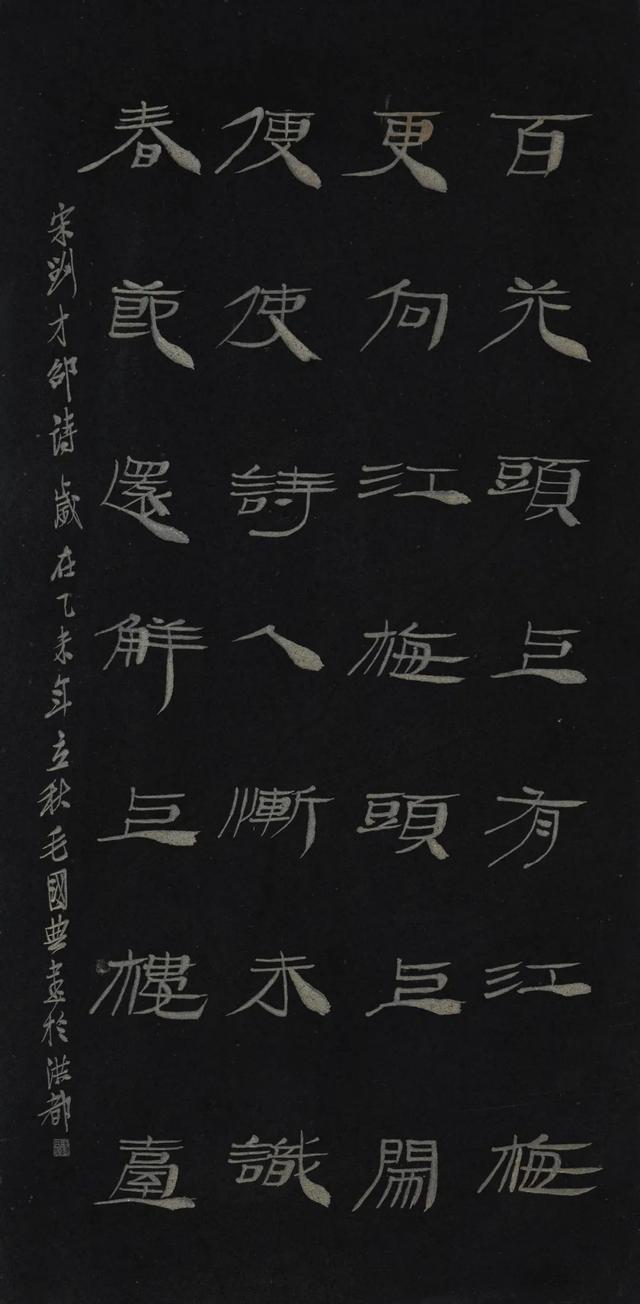 百花頭上有江梅
更向江梅頭上開
便使詩人慚未識
春節還解上樓臺
宋劉才邵詩 歲在乙未年立秋毛國典書於洪都